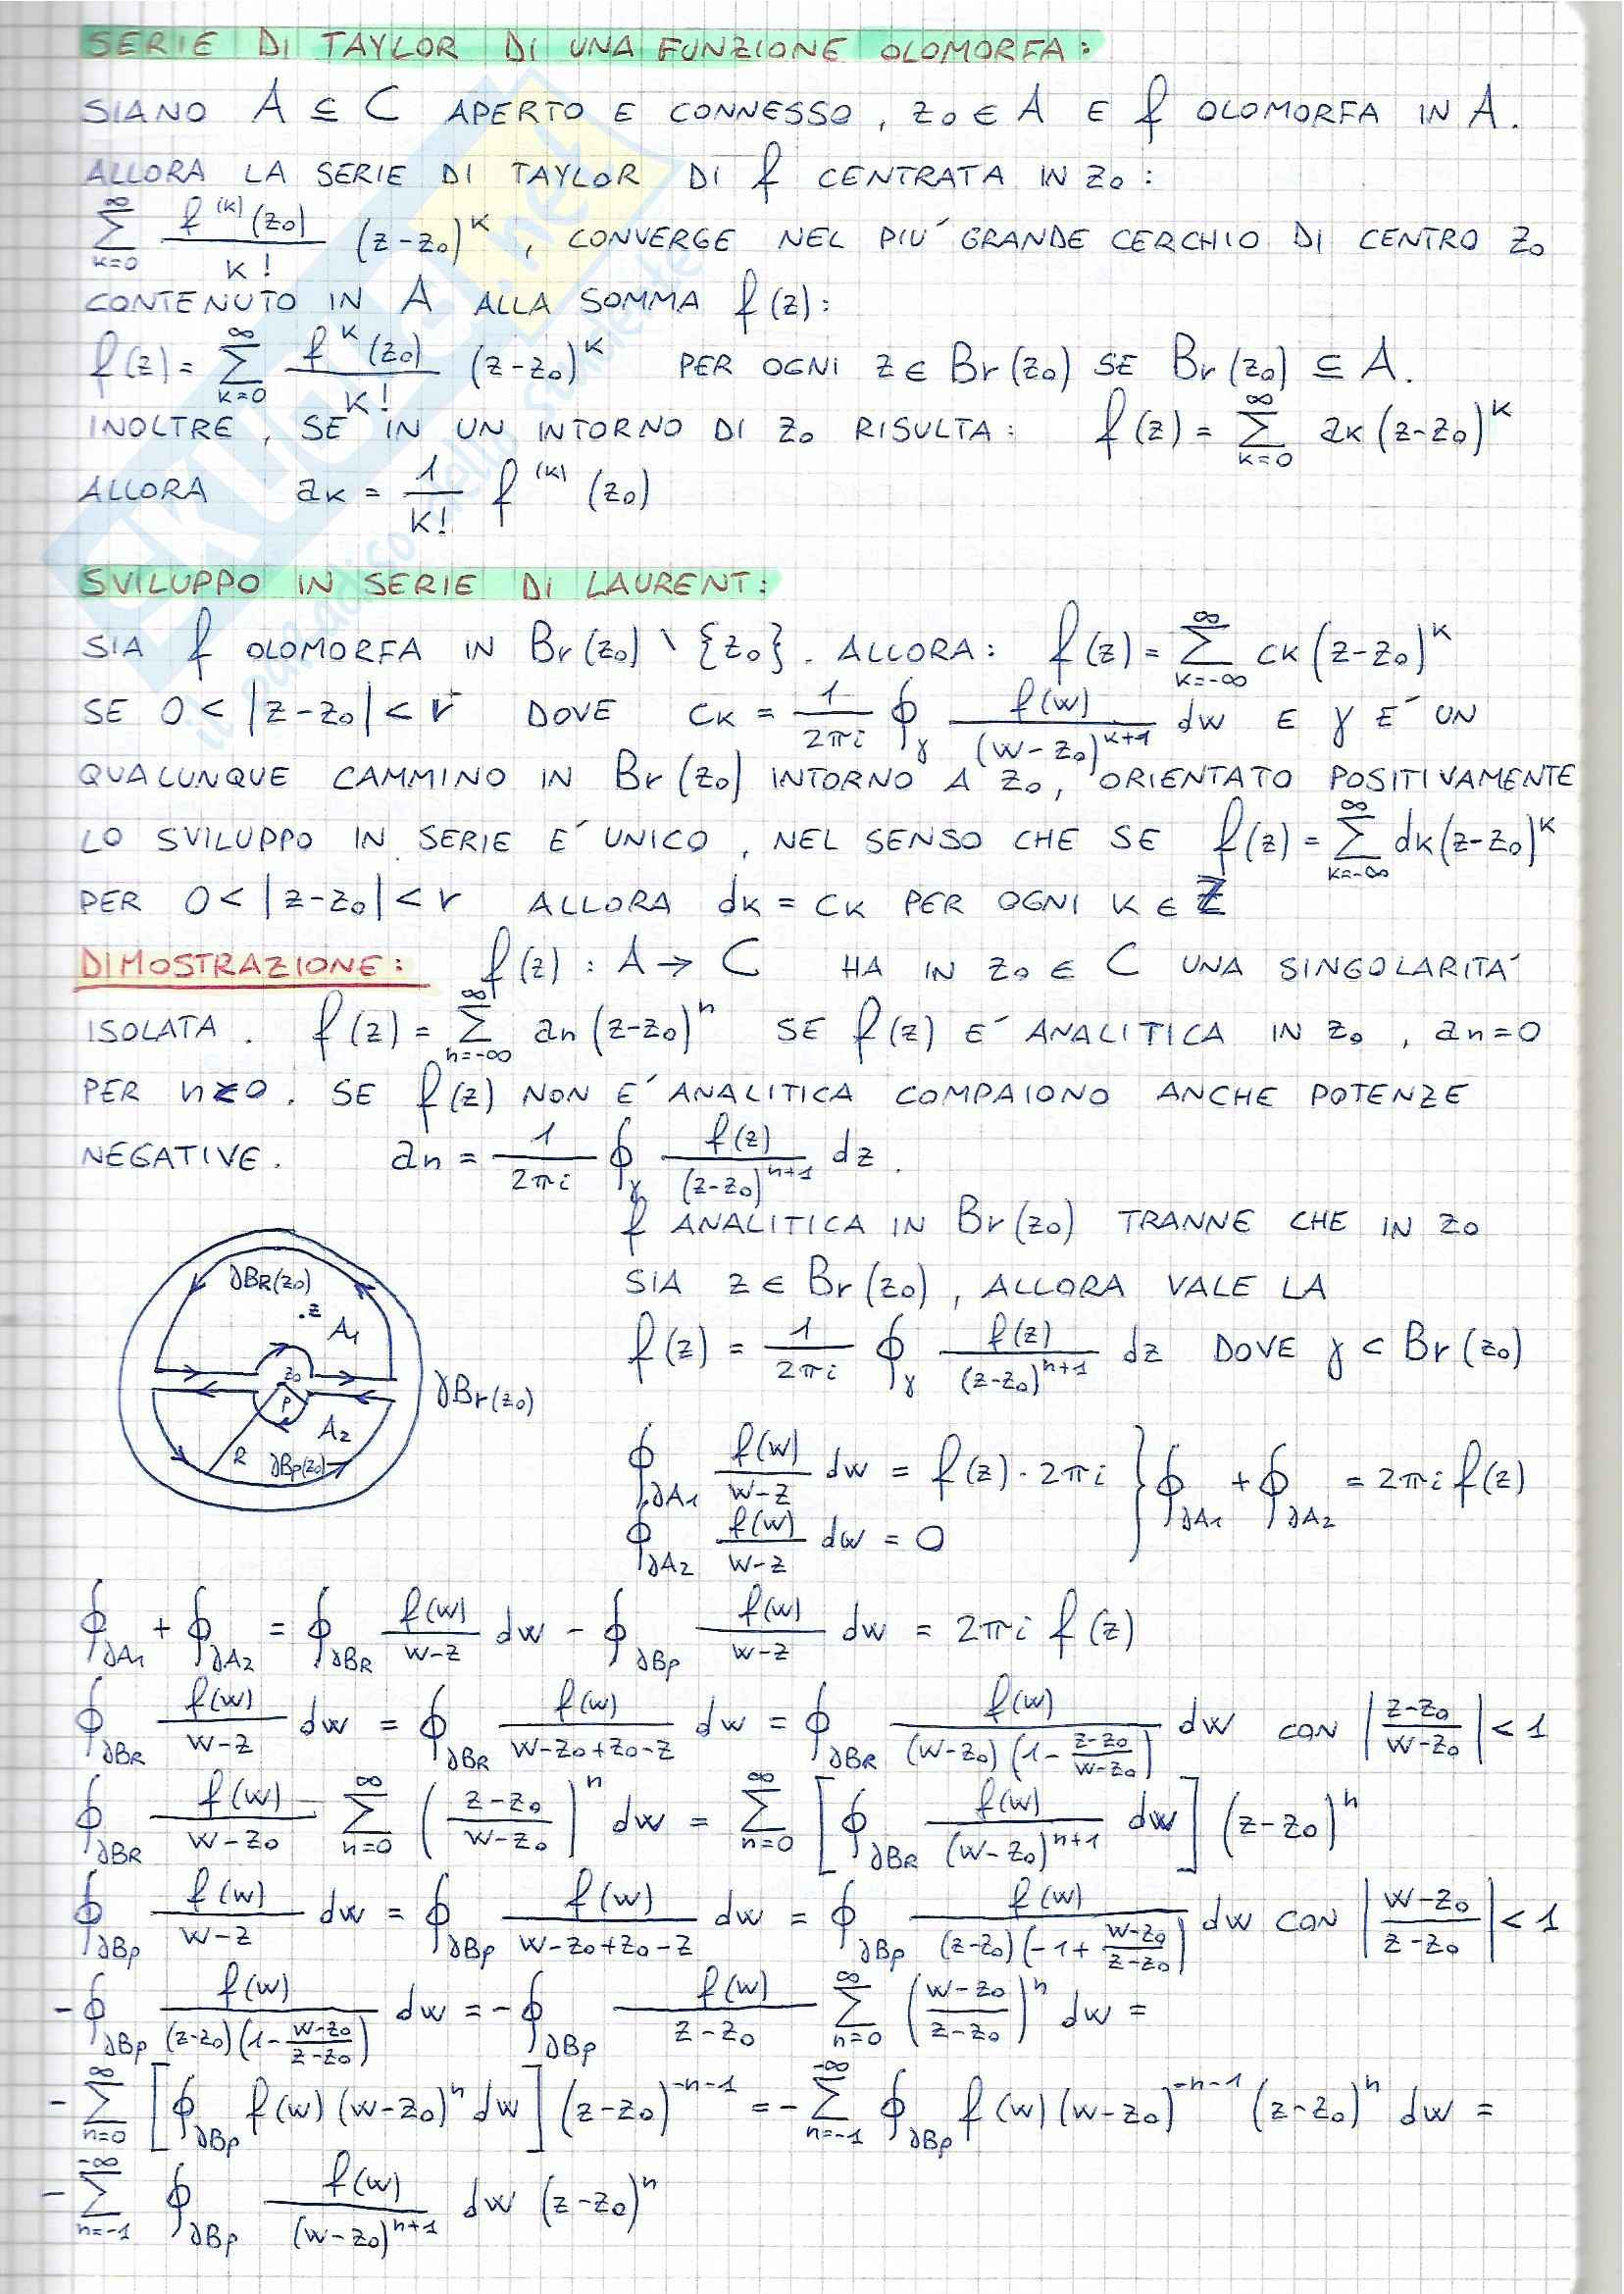 SERIE DI TAYLOR DI UNA FUNZIONE OLOMORFA:
SIANO A ⊆ C APERTO E CONNESSO, z₀ ∈ A E f OLOMORFA IN A.
ALLORA LA SERIE DI TAYLOR DI f CENTRATA IN z₀:
∑_{k=0}^{∞} f^{(k)}(z₀)/k! (z-z₀)^k, CONVERGE NEL PIU' GRANDE CERCHIO DI CENTRO z₀
CONTENUTO IN A ALLA SOMMA f(z):
f(z) = ∑_{k=0}^{∞} f^k(z₀)/k! (z-z₀)^k PER OGNI z ∈ Br(z₀) SE Br(z₀) ⊆ A.
INOLTRE, SE IN UN INTORNO DI z₀ RISULTA: f(z) = ∑_{k=0}^{∞} ak (z-z₀)^k
ALLORA ak = 1/k! f^{(k)}(z₀)
SVILUPPO IN SERIE DI LAURENT:
SIA f OLOMORFA IN Br(z₀) \ {z₀}. ALLORA: f(z) = ∑_{k=-∞}^{∞} ck (z-z₀)^k
SE 0 < |z-z₀| < r DOVE ck = 1/2πi ∮_γ f(w)/(w-z₀)^{k+1} dw E γ E' UN
QUALUNQUE CAMMINO IN Br(z₀) INTORNO A z₀, ORIENTATO POSITIVAMENTE
LO SVILUPPO IN SERIE E' UNICO, NEL SENSO CHE SE f(z) = ∑_{k=-∞}^{∞} dk (z-z₀)^k
PER 0 < |z-z₀| < r ALLORA dk = ck PER OGNI k ∈ Z
DIMOSTRAZIONE: f(z) : A → C HA IN z₀ ∈ C UNA SINGOLARITA'
ISOLATA. f(z) = ∑_{n=-∞}^{∞} an (z-z₀)^n SE f(z) E' ANALITICA IN z₀, an = 0
PER n<0. SE f(z) NON E' ANALITICA COMPAIONO ANCHE POTENZE
NEGATIVE. an = 1/2πi ∮_γ f(z)/(z-z₀)^{n+1} dz.
f ANALITICA IN Br(z₀) TRANNE CHE IN z₀
SIA z ∈ Br(z₀), ALLORA VALE LA
f(z) = 1/2πi ∮_γ f(z)/(z-z₀)^{n+1} dz DOVE γ ⊂ Br(z₀)
∂BR(z₀)
.z
A₁
z₀
ρ
∂Br(z₀)
A₂
R
∂Bρ(z₀)
∮_{∂A₁} f(w)/w-z dw = f(z)·2πi } ∮_{∂A₁} + ∮_{∂A₂} = 2πi f(z)
∮_{∂A₂} f(w)/w-z dw = 0
∮_{∂A₁} + ∮_{∂A₂} = ∮_{∂BR} f(w)/w-z dw - ∮_{∂Bρ} f(w)/w-z dw = 2πi f(z)
∮_{∂BR} f(w)/w-z dw = ∮_{∂BR} f(w)/w-z₀+z₀-z dw = ∮_{∂BR} f(w)/(w-z₀)(1-z-z₀/w-z₀) dw CON |z-z₀/w-z₀| < 1
∮_{∂BR} f(w)/w-z₀ ∑_{n=0}^{∞} (z-z₀/w-z₀)^n dw = ∑_{n=0}^{∞} [∮_{∂BR} f(w)/(w-z₀)^{n+1} dw] (z-z₀)^n
∮_{∂Bρ} f(w)/w-z dw = ∮_{∂Bρ} f(w)/w-z₀+z₀-z dw = ∮_{∂Bρ} f(w)/(z-z₀)(-1+w-z₀/z-z₀) dw CON |w-z₀/z-z₀| < 1
-∮_{∂Bρ} f(w)/(z-z₀)(1-w-z₀/z-z₀) dw = -∮_{∂Bρ} f(w)/z-z₀ ∑_{n=0}^{∞} (w-z₀/z-z₀)^n dw =
-∑_{n=0}^{∞} [∮_{∂Bρ} f(w)(w-z₀)^n dw] (z-z₀)^{-n-1} = -∑_{n=-1}^{-∞} ∮_{∂Bρ} f(w)(w-z₀)^{-n-1} (z-z₀)^n dw =
-∑_{n=-1}^{-∞} ∮_{∂Bρ} f(w)/(w-z₀)^{n+1} dw (z-z₀)^n